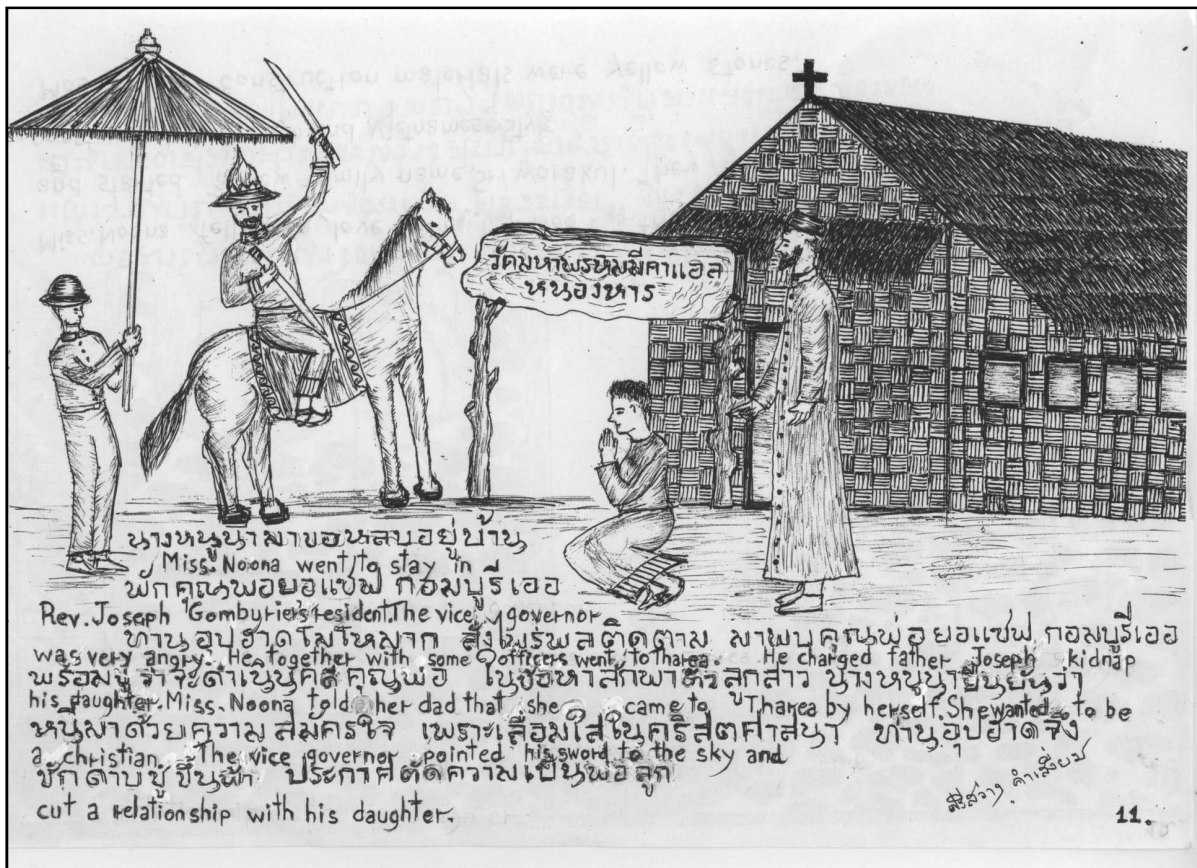 วัดมหาพรหมมีคาแอล
หนองหาร
นางหนูนามาขอหลบอยู่บ้าน
Miss. Noona went to stay in
พักคุณพ่อยอแซฟ กอมบูรีเออ
Rev. Joseph Gomburier's resident. The vice governor
ท่านอุปฮาดโมโหมาก สั่งไพร่พลติดตาม มาพบคุณพ่อยอแซฟ กอมบูรีเออ
was very angry. He together with some officers went to tharea. He charged father Joseph kidnap
พร้อมขู่ว่าจะดำเนินคดีคุณพ่อ ในข้อหาลักพาตัวลูกสาว นางหนูนายืนยันว่า
his daughter. Miss. Noona told her dad that she came to Tharea by herself. She wanted to be
หนีมาด้วยความสมัครใจ เพราะเลื่อมใสในคริสตศาสนา ท่านอุปฮาดจึง
a christian. The vice governor pointed his sword to the sky and
ชักดาบชูขึ้นฟ้า ประกาศตัดความเป็นพ่อลูก
cut a relationship with his daughter.
11.